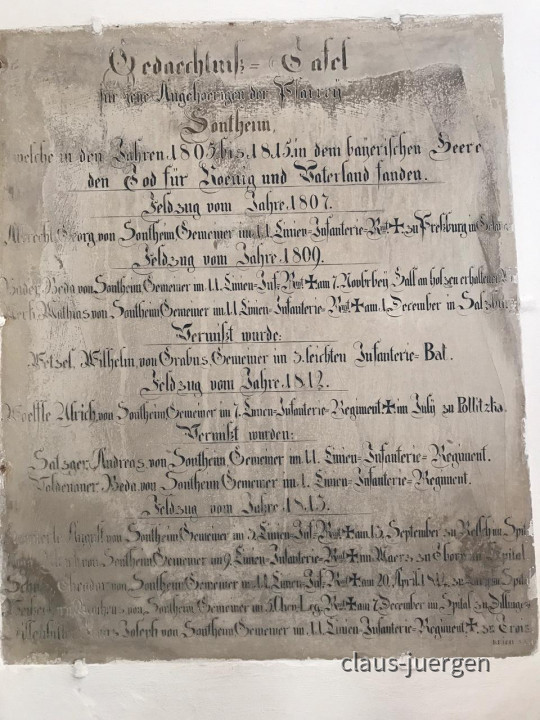 Gedaechtniß= Tafel
für jene Angehoerigen der Pfarrey
Sontheim,
welche in den Jahren 1805 bis 1815. in dem bayerischen Heere
den Tod für Koenig und Vaterland fanden.
Feldzug vom Jahre 1807.
Georg, von Sontheim Gemeiner im 11. Linien=Infanterie=Rgt ✠ zu Preßburg im
Feldzug vom Jahre 1809.
Beda, von Sontheim Gemeiner im 11. Linien=Inf. Rgt ✠ am 7. Novbr bey Hall an
Mathias von Sontheim Gemeiner im 11. Linien=Infanterie=Rgt ✠ am 1. December in
Vermißt wurde:
Wetzel, Wilhelm, von Grabus, Gemeiner im 5. leichten Infanterie=Bat.
Feldzug vom Jahre 1812.
Ulrich, von Sontheim Gemeiner im 7. Linien=Infanterie=Regiment ✠ im July zu Pollitzka.
Vermißt wurden:
Salzger, Andreas, von Sontheim, Gemeiner im 11. Linien=Infanterie=Regiment.
Beda, von Sontheim Gemeiner im 1. Linien=Infanterie=Regiment.
Feldzug vom Jahre 1813.
von Sontheim Gemeiner im 5. Linien=Inf. Rgt ✠ am 15. September zu
von Sontheim Gemeiner im 9. Linien=Infanterie=Rgt ✠ im Maerz zu Thorn im Spital
Theodor von Sontheim Gemeiner im 11. Linien=Inf. Rgt ✠ am 20. April
von Sontheim Gemeiner im 5. Chev. Leg. Rgt ✠ am 7. December im Spital zu Dillingen
Joseph von Sontheim Gemeiner im 11. Linien=Infanterie=Regiment ✠ zu
claus-juergen